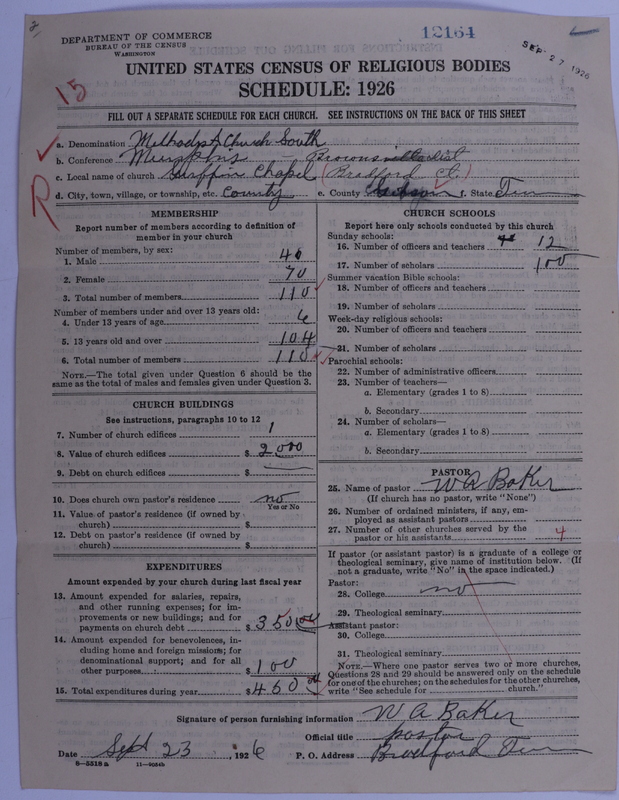 DEPARTMENT OF COMMERCE
BUREAU OF THE CENSUS
WASHINGTON
12164
SEP 27 1926
UNITED STATES CENSUS OF RELIGIOUS BODIES
SCHEDULE: 1926
15
FILL OUT A SEPARATE SCHEDULE FOR EACH CHURCH. SEE INSTRUCTIONS ON THE BACK OF THIS SHEET
a. Denomination Methodist Church South
b. Conference
c. Local name of church Chapel (Bradford Ct.)
d. City, town, village, or township, etc. County e. County f. State Tenn
R
MEMBERSHIP
Report number of members according to definition of
member in your church
Number of members, by sex:
1. Male 40
2. Female 70
3. Total number of members 110
Number of members under and over 13 years old:
4. Under 13 years of age 6
5. 13 years old and over 104
6. Total number of members 110
NOTE.—The total given under Question 6 should be the
same as the total of males and females given under Question 3.
CHURCH BUILDINGS
See instructions, paragraphs 10 to 12
7. Number of church edifices 1
8. Value of church edifices $ 2000
9. Debt on church edifices $
10. Does church own pastor's residence no
Yes or No
11. Value of pastor's residence (if owned by
church) $
12. Debt on pastor's residence (if owned by
church) $
EXPENDITURES
Amount expended by your church during last fiscal year
13. Amount expended for salaries, repairs,
and other running expenses; for im-
provements or new buildings; and for
payments on church debt $ 350 00
14. Amount expended for benevolences, in-
cluding home and foreign missions; for
denominational support; and for all
other purposes $ 100
15. Total expenditures during year $ 450
CHURCH SCHOOLS
Report here only schools conducted by this church
Sunday schools:
16. Number of officers and teachers 12
17. Number of scholars 100
Summer vacation Bible schools:
18. Number of officers and teachers
19. Number of scholars
Week-day religious schools:
20. Number of officers and teachers
21. Number of scholars
Parochial schools:
22. Number of administrative officers
23. Number of teachers—
a. Elementary (grades 1 to 8)
b. Secondary
24. Number of scholars—
a. Elementary (grades 1 to 8)
b. Secondary
PASTOR
25. Name of pastor W A Baker
(If church has no pastor, write "None")
26. Number of ordained ministers, if any, em-
ployed as assistant pastors
27. Number of other churches served by the
pastor or his assistants 4
If pastor (or assistant pastor) is a graduate of a college or
theological seminary, give name of institution below. (If
not a graduate, write "No" in the space indicated.)
Pastor:
28. College no
29. Theological seminary
Assistant pastor:
30. College
31. Theological seminary
NOTE.—Where one pastor serves two or more churches,
Questions 28 and 29 should be answered only on the schedule
for one of the churches; on the schedules for the other churches,
write "See schedule for church."
Signature of person furnishing information W A Baker
Official title pastor
Date Sept 23, 1926 P. O. Address Bradford Tenn
8—5518 a 11—9054b